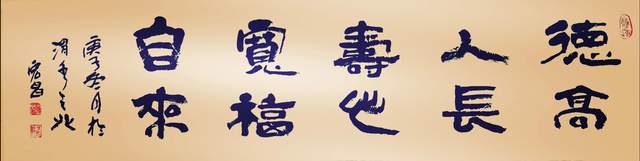 德高
人長
壽心
寬福
自來
庚子冬月於
渭水之北